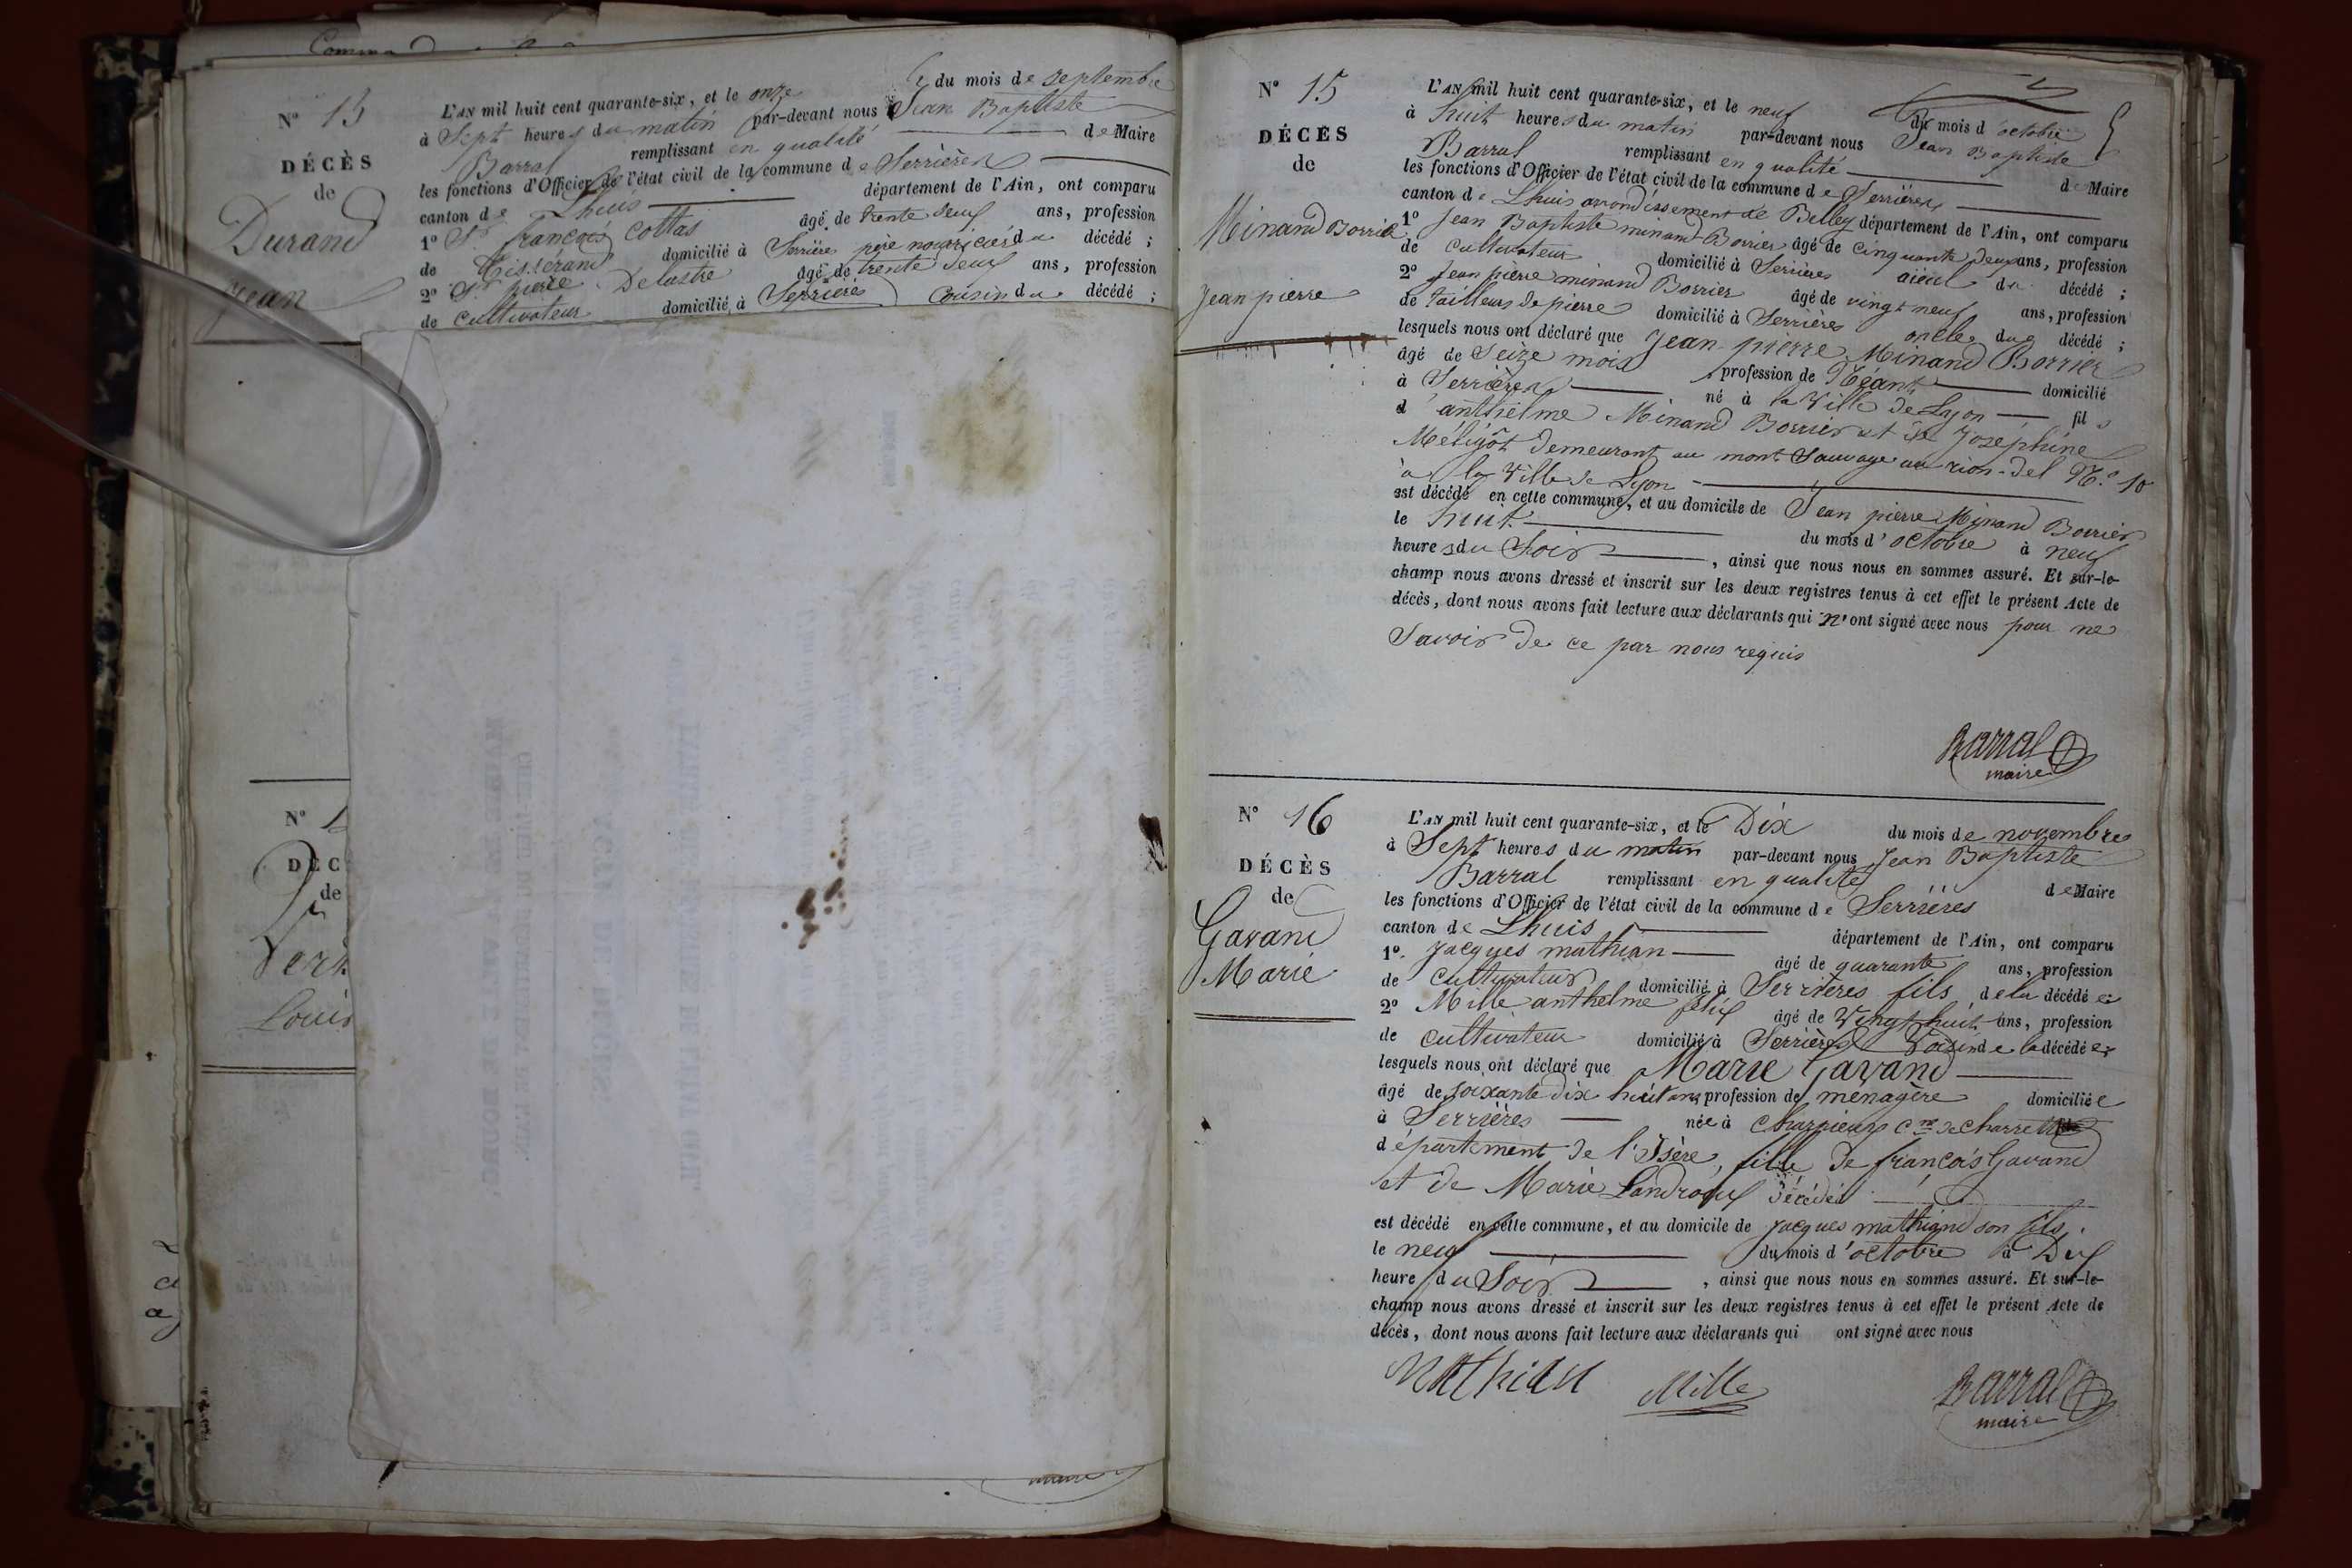 Comm
N° 13
DÉCÈS
de
Durand
Jean
L'AN mil huit cent quarante-six, et le onze du mois de septembre
à Sept heures du matin par-devant nous Jean Baptiste
Barral remplissant en qualité de Maire
les fonctions d'Officier de l'état civil de la commune de Serrières
canton de Lhuis département de l'Ain, ont comparu
1° Sr françois Cottas âgé de trente deux ans, profession
de Tisserand domicilié à Serrière père nourricier du décédé ;
2° Sr pierre Delastre âgé de trente deux ans, profession
de cultivateur domicilié à Serrières Cousin du décédé ;
N° 1
DÉC
de
Louis
N° 15
DÉCÈS
de
Minand Borrier
Jean pierre
L'AN mil huit cent quarante-six, et le neuf du mois d'octobre
à huit heures du matin par-devant nous Jean Baptiste
Barral remplissant en qualité de Maire
les fonctions d'Officier de l'état civil de la commune de Serrières
canton de Lhuis arrondissement de Belley département de l'Ain, ont comparu
1° Jean Baptiste minand Borrier âgé de cinquante deux ans, profession
de cultivateur domicilié à Serrières aieul du décédé ;
2° Jean pierre minand Borrier âgé de vingt neuf ans, profession
de tailleur de pierre domicilié à Serrières oncle du décédé ;
lesquels nous ont déclaré que Jean pierre Minand Borrier
âgé de Seize mois profession de Néant domicilié
à Serrières né à la Ville de Lyon fils
d'anthelme Minand Borrier et de Joséphine
demeurant au mont Sauvage N.° 10
à la Ville de Lyon
est décédé en cette commune, et au domicile de Jean pierre Minand Borrier
le huit du mois d'octobre à neuf
heures du Soir, ainsi que nous nous en sommes assuré. Et sur-le-
champ nous avons dressé et inscrit sur les deux registres tenus à cet effet le présent Acte de
décès, dont nous avons fait lecture aux déclarants qui n'ont signé avec nous pour ne
Savoir de ce par nous requis
Barral
maire
N° 16
DÉCÈS
de
Gavand
Marie
L'AN mil huit cent quarante-six, et le Dix du mois de novembre
à Sept heures du matin par-devant nous Jean Baptiste
Barral remplissant en qualité de Maire
les fonctions d'Officier de l'état civil de la commune de Serrières
canton de Lhuis département de l'Ain, ont comparu
1°. Jacques mathian âgé de quarante ans, profession
de cultivateur domicilié à Serrières fils de la décédée
2° Mille anthelme felix âgé de Vingt huit ans, profession
de cultivateur domicilié à Serrières Voisin de la décédée
lesquels nous ont déclaré que Marie Gavand
âgé de soixante dix huit ans profession de ménagère domiciliée
à Serrières née à cne de Charrette
département de l'Isère, fille de françois Gavand
et de Marie décédés
est décédé en cette commune, et au domicile de Jacques mathian son fils.
le neuf du mois d'octobre à Dix
heure du Soir, ainsi que nous nous en sommes assuré. Et sur-le-
champ nous avons dressé et inscrit sur les deux registres tenus à cet effet le présent Acte de
décès, dont nous avons fait lecture aux déclarants qui ont signé avec nous
Mathian Mille Barral
maire